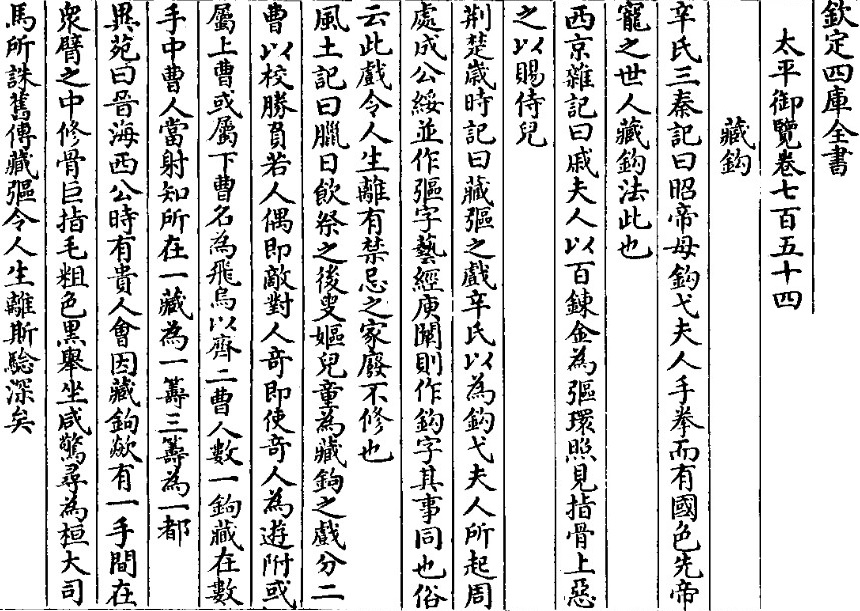 欽定四庫全書
太平御覽卷七百五十四
藏鈎
辛氏三秦記曰昭帝母鈎弋夫人手拳而有國色先帝
寵之世人藏鈎法此也
西京雜記曰戚夫人以百鍊金為彄環照見指骨上惡
之以賜侍兒
荆楚嵗時記曰藏彄之戲辛氏以為鈎弋夫人所起周
處成公綏並作彄字藝經庾闡則作鈎字其事同也俗
云此戲令人生離有禁忌之家廢不修也
風土記曰臘日飲祭之後叟嫗兒童為藏鈎之戲分二
曹以校勝負若人偶即敵對人竒即使竒人為遊附或
屬上曹或屬下曹名為飛鳥以齊二曹人數一鈎藏在數
手中曹人當射知所在一藏為一籌三籌為一都
異苑曰晉海西公時有貴人會因藏鈎歘有一手間在
衆臂之中修骨巨指毛粗色黑舉坐咸驚尋為桓大司
馬所誅舊傳藏彄令人生離斯驗深矣